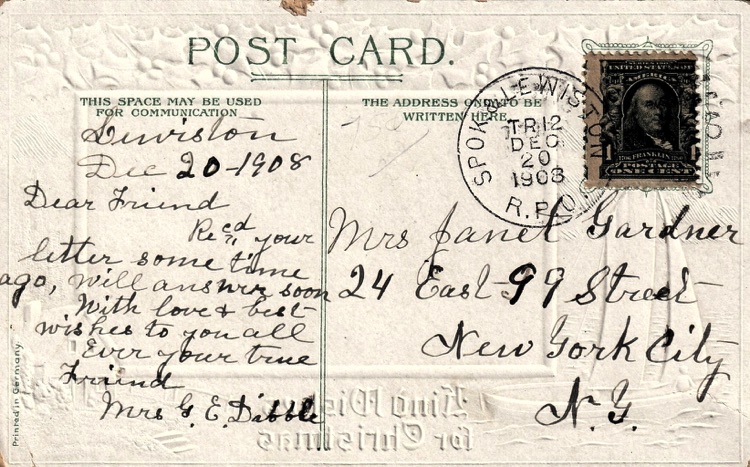 POST CARD.
THIS SPACE MAY BE USED
FOR COMMUNICATION
THE ADDRESS ONLY TO BE
WRITTEN HERE
Lewiston
Dec 20-1908
Dear Friend
Recd your
letter some time
ago, will answer soon
With love & best
wishes to you all
Ever your true
Friend
Mrs G. E. Dibble
Mrs Janet Gardner
24 East 99 Street
New York City
N.Y.
SPOK & LEWIS
TR.12
DEC
20
1908
R.P.O.
UNITED STATES OF
AMERICA
FRANKLIN
POSTAGE
ONE CENT
Printed in Germany
Kind Wishes
for Christmas